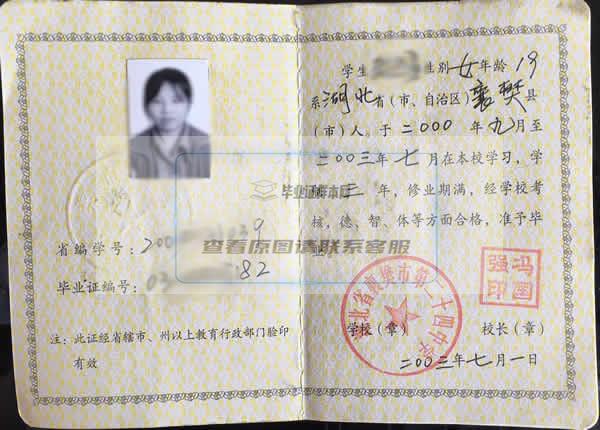 省编学号：200 039
毕业证编号：03 82
注：此证经省辖市、州以上教育行政部门验印
有效
学生 性别 女 年龄 19
系 湖北 省（市、自治区）襄樊 县
（市）人。于二000年九月至
二00三年七月在本校学习，学
制三年，修业期满，经学校考
核，德、智、体等方面合格，准予毕
业
学校（章） 校长（章）
二00三年七月一日
湖北省襄樊市第二十四中学
冯国强印
毕业证样本网
查看原图请联系客服